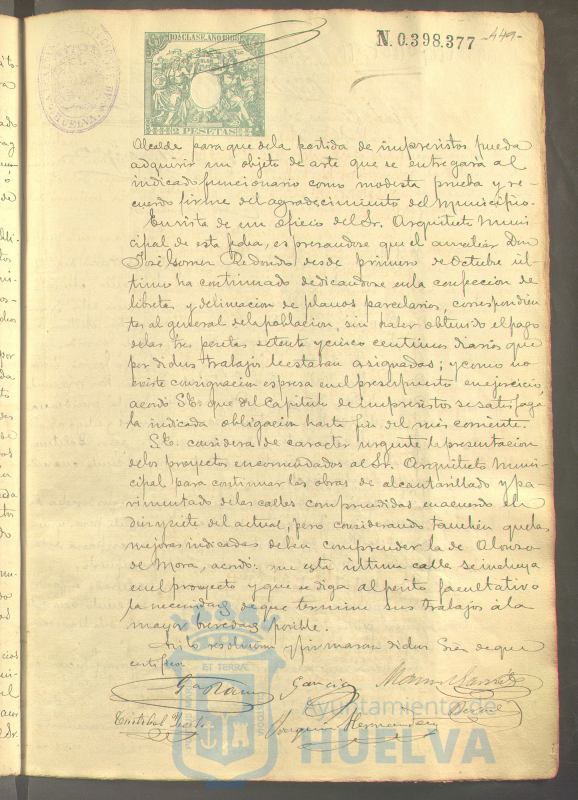 10ª CLASE. AÑO 1898
2 PESETAS
HUELVA
N. 0.398.377
-449-
Alcalde para que de la partida de imprevistos pueda
adquirir un objeto de arte que se entregará al
indicado funcionario como modesta prueba y re-
cuerdo firme del agradecimiento del Municipio.
En vista de un oficio del Sr. Arquitecto Muni
cipal de esta fecha, espresandose que el auxiliar Don
José Gomez Redondo desde primero de Octubre úl-
timo ha continuado dedicandose en la confeccion de
libretas y delineacion de planos parcelarios, correspondien
tes al general de la poblacion, sin haber obtenido el pago
de las tres pesetas setenta y cinco centimos diarios que
por dichos trabajos le estaban asignadas; y como no
existe consignacion espresa en el presupuesto en ejercicio,
acordó S.E. que del Capitulo de imprevistos se satisfaga
la indicada obligacion hasta fin del mes corriente.
S.E. considera de caracter urgente la presentacion
de los proyectos encomendados al Sr. Arquitecto Muni-
cipal para continuar las obras de alcantarillado y pa-
vimentado de las calles comprendidas en acuerdo de
diez y siete del actual; pero considerando tambien que las
mejoras indicadas deben comprender la de Alonso
de Mora, acordó: que esta ultima calle se incluya
en el proyecto y que se diga al perito facultativo
la necesidad de que termine sus trabajos a la
mayor brevedad posible.
Asi lo resolvieron y firmaran dichos Sres de que
certifico
García
Joaquin Hernandez
ET TERRAE
Ayuntamiento de
HUELVA